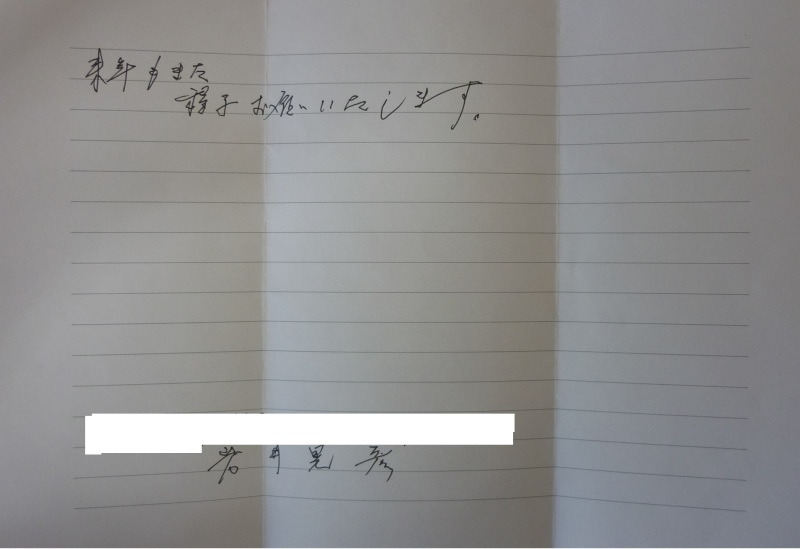 来年もまた
種子お願いいたします。
岩井晃彦